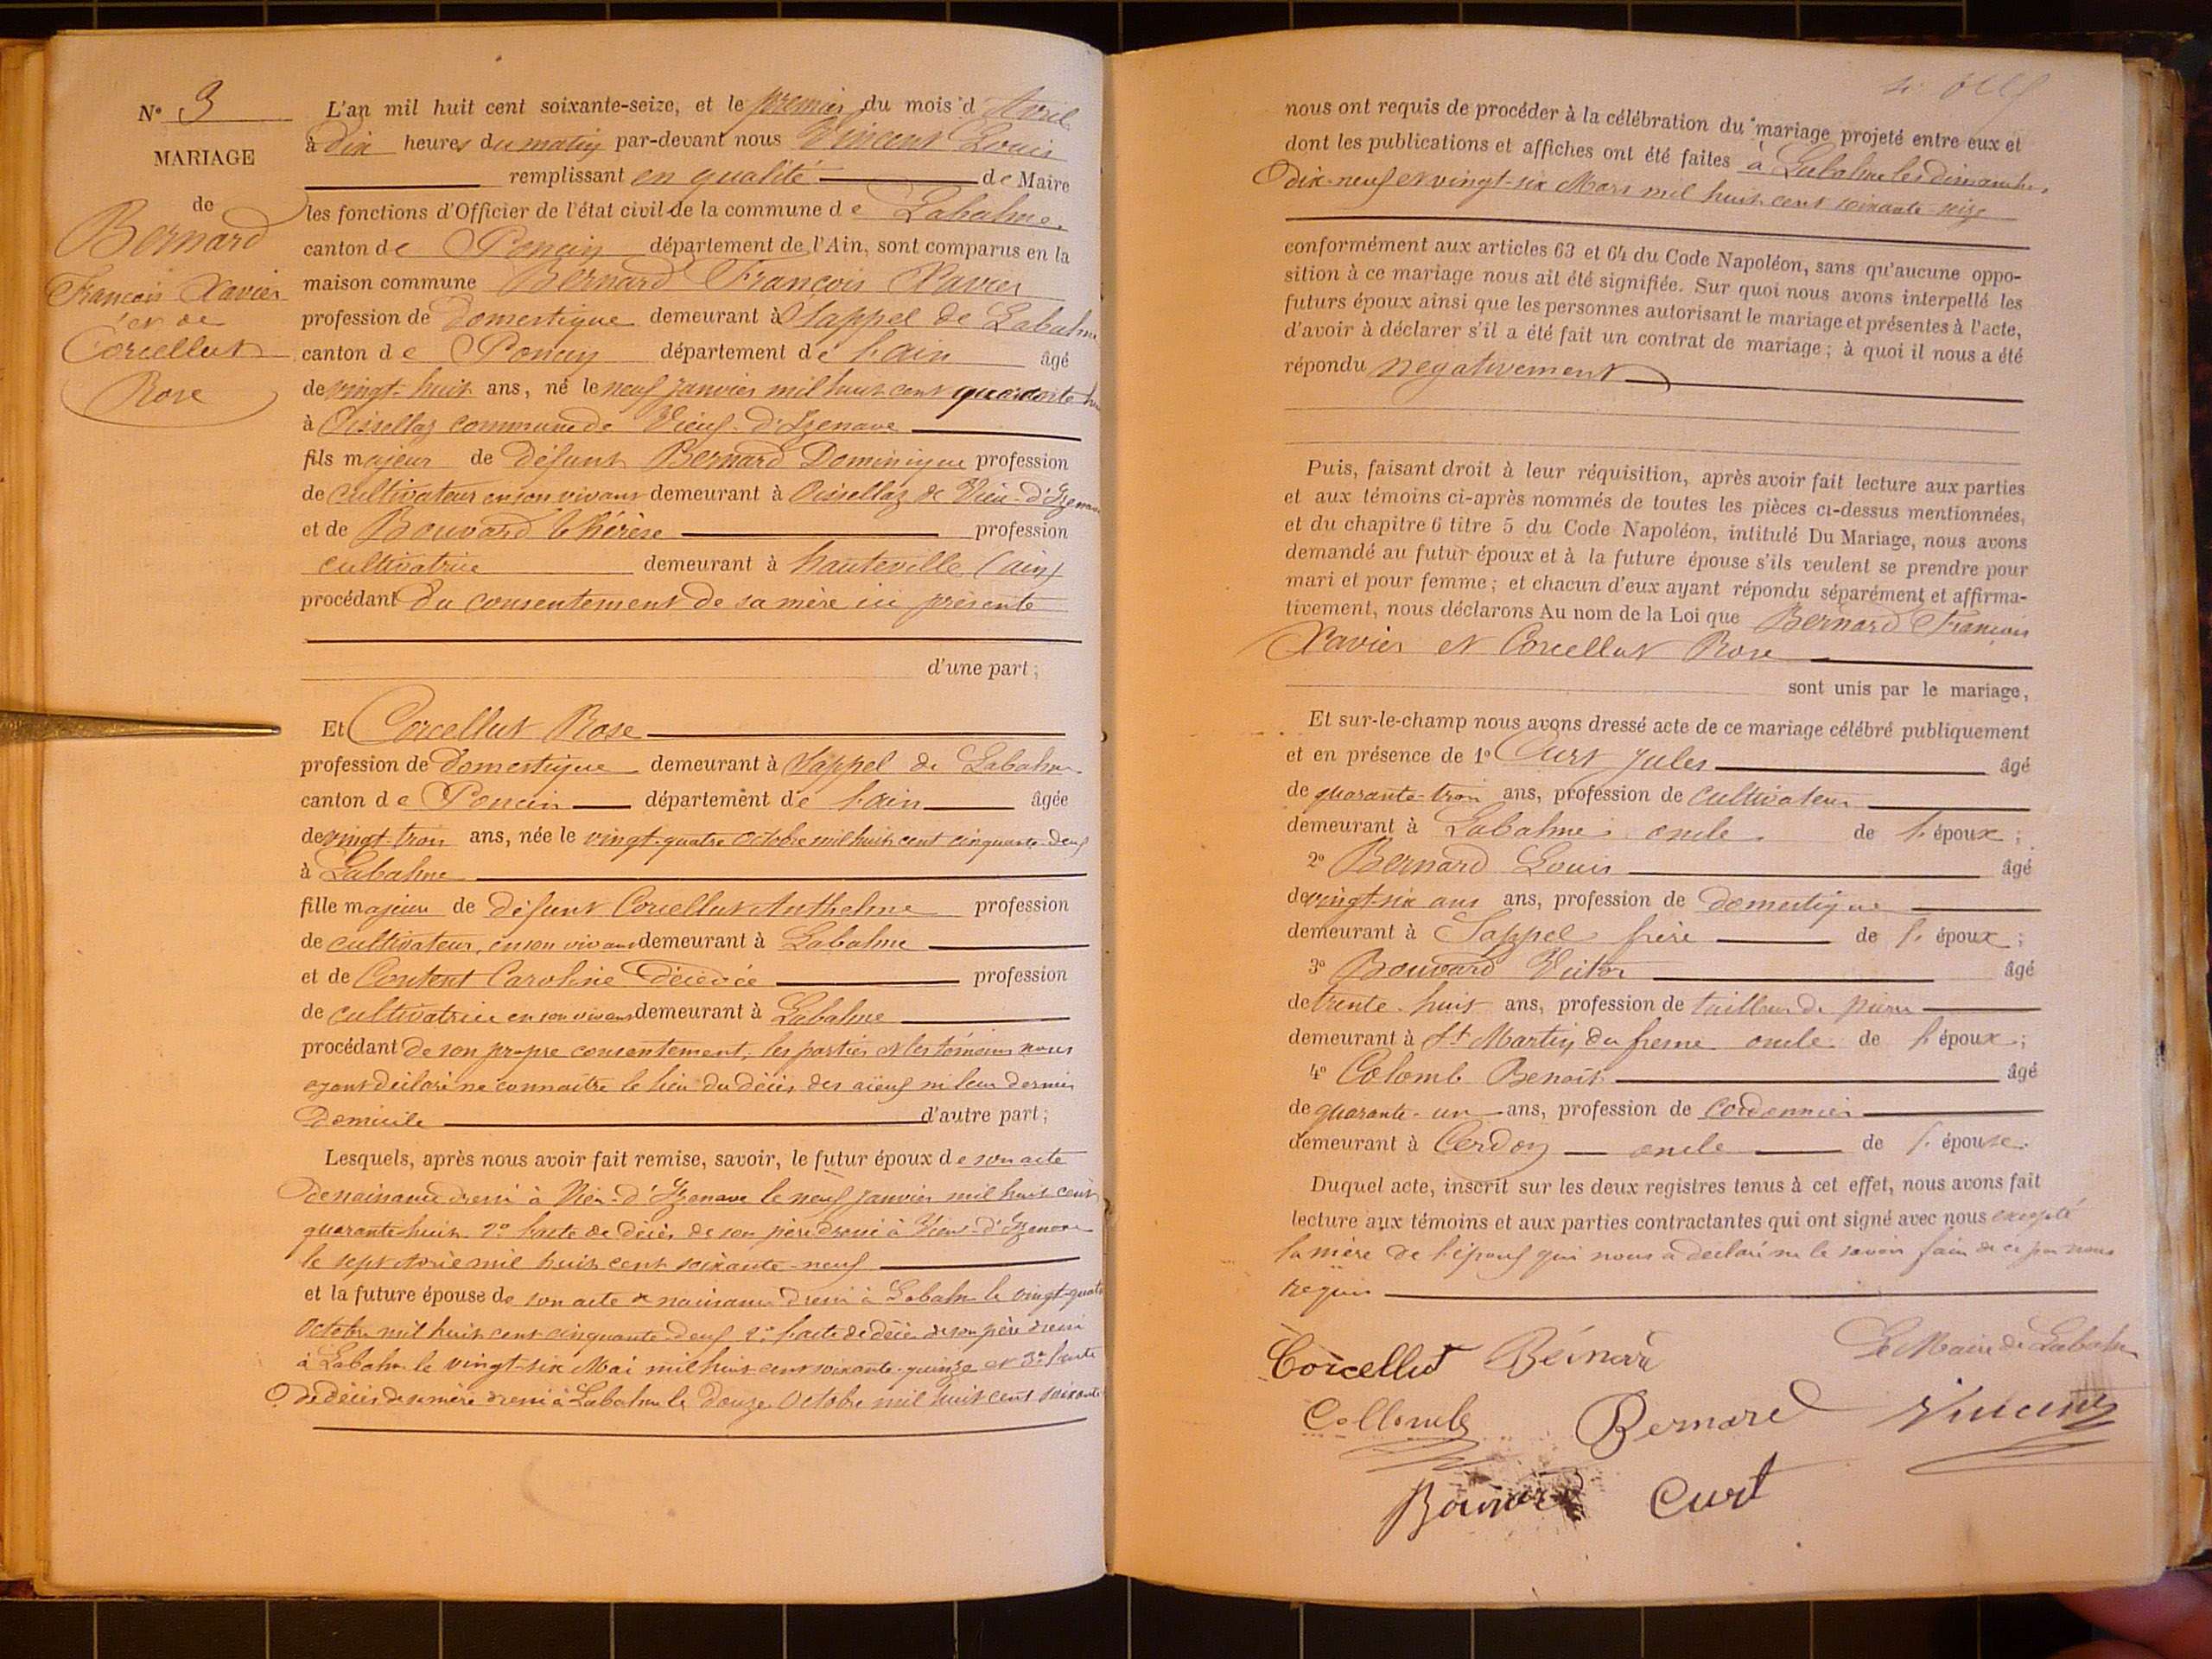 N° 3
MARIAGE
de
Bernard
François Xavier
et de
Corcellut
Rose
L'an mil huit cent soixante-seize, et le premier du mois d'Avril
à dix heures du matin par-devant nous Vincent Louis
remplissant en qualité de Maire
les fonctions d'Officier de l'état civil de la commune de Labalme.
canton de Poncin département de l'Ain, sont comparus en la
maison commune Bernard François Xavier
profession de domestique demeurant à Sappel de Labalme
canton de Poncin département de l'ain âgé
de vingt-huit ans, né le neuf janvier mil huit cent quarante hu
à Oissellaz commune de Vieux-d'Izenave
fils majeur de défunt Bernard Dominique profession
de cultivateur en son vivant demeurant à Oissellaz de Vieu-d'Izenave
et de Bouvard thérèse profession
cultivatrice demeurant à hauteville (ain)
procédant du consentement de sa mère ici présente
d'une part ;
Et Corcellut Rose
profession de domestique demeurant à Sappel de Labalme
canton de Poncin département de l'ain âgée
de vingt-trois ans, née le vingt-quatre octobre mil huit cent cinquante-deux
à Labalme
fille majeure de défunt Corcellut Anthelme profession
de cultivateur, en son vivant demeurant à Labalme
et de Content Caroline décédée profession
de cultivatrice en son vivant demeurant à Labalme
procédant de son propre consentement, les parties et les témoins nous
ayant déclaré ne connaître le lieu du décès des aïeux ni leur dernier
domicile d'autre part ;
Lesquels, après nous avoir fait remise, savoir, le futur époux de son acte
de naissance dressé à Vieu-d'Izenave le neuf janvier mil huit cent
quarante-huit. 2° l'acte de décès de son père dressé à Vieu-d'Izenave
le sept mil huit cent soixante-neuf
et la future épouse de son acte de naissance dressé à Labalme le vingt-quatre
Octobre mil huit cent cinquante-deux 2° l'acte de décès de son père dressé
à Labalme le vingt-six Mai mil huit cent soixante-quinze et 3° l'acte
de décès de sa mère dressé à Labalme le douze Octobre mil huit cent soixante
nous ont requis de procéder à la célébration du mariage projeté entre eux et
dont les publications et affiches ont été faites à Labalme les dimanches
dix-neuf et vingt-six Mars mil huit cent soixante-seize
conformément aux articles 63 et 64 du Code Napoléon, sans qu'aucune oppo-
sition à ce mariage nous ait été signifiée. Sur quoi nous avons interpellé les
futurs époux ainsi que les personnes autorisant le mariage et présentes à l'acte,
d'avoir à déclarer s'il a été fait un contrat de mariage ; à quoi il nous a été
répondu négativement
Puis, faisant droit à leur réquisition, après avoir fait lecture aux parties
et aux témoins ci-après nommés de toutes les pièces ci-dessus mentionnées,
et du chapitre 6 titre 5 du Code Napoléon, intitulé Du Mariage, nous avons
demandé au futur époux et à la future épouse s'ils veulent se prendre pour
mari et pour femme ; et chacun d'eux ayant répondu séparément et affirma-
tivement, nous déclarons Au nom de la Loi que Bernard François
Xavier et Corcellut Rose
sont unis par le mariage,
Et sur-le-champ nous avons dressé acte de ce mariage célébré publiquement
et en présence de 1° Curt Jules âgé
de quarante-trois ans, profession de cultivateur
demeurant à Labalme oncle de l'époux ;
2° Bernard Louis âgé
de vingt-six ans ans, profession de domestique
demeurant à Sappel frère de l'époux ;
3° Bouvard Victor âgé
de trente-huit ans, profession de tailleur de pierre
demeurant à St Martin du fresne oncle de l'époux ;
4° Colomb Benoît âgé
de quarante-un ans, profession de cordonnier
demeurant à Cerdon oncle de l'épouse.
Duquel acte, inscrit sur les deux registres tenus à cet effet, nous avons fait
lecture aux témoins et aux parties contractantes qui ont signé avec nous excepté
la mère de l'époux qui nous a déclaré ne le savoir faire de ce par nous
requis
Corcellut Bernard Le Maire de Labalme
Collomb Bernard Vincent
Bouvard Curt